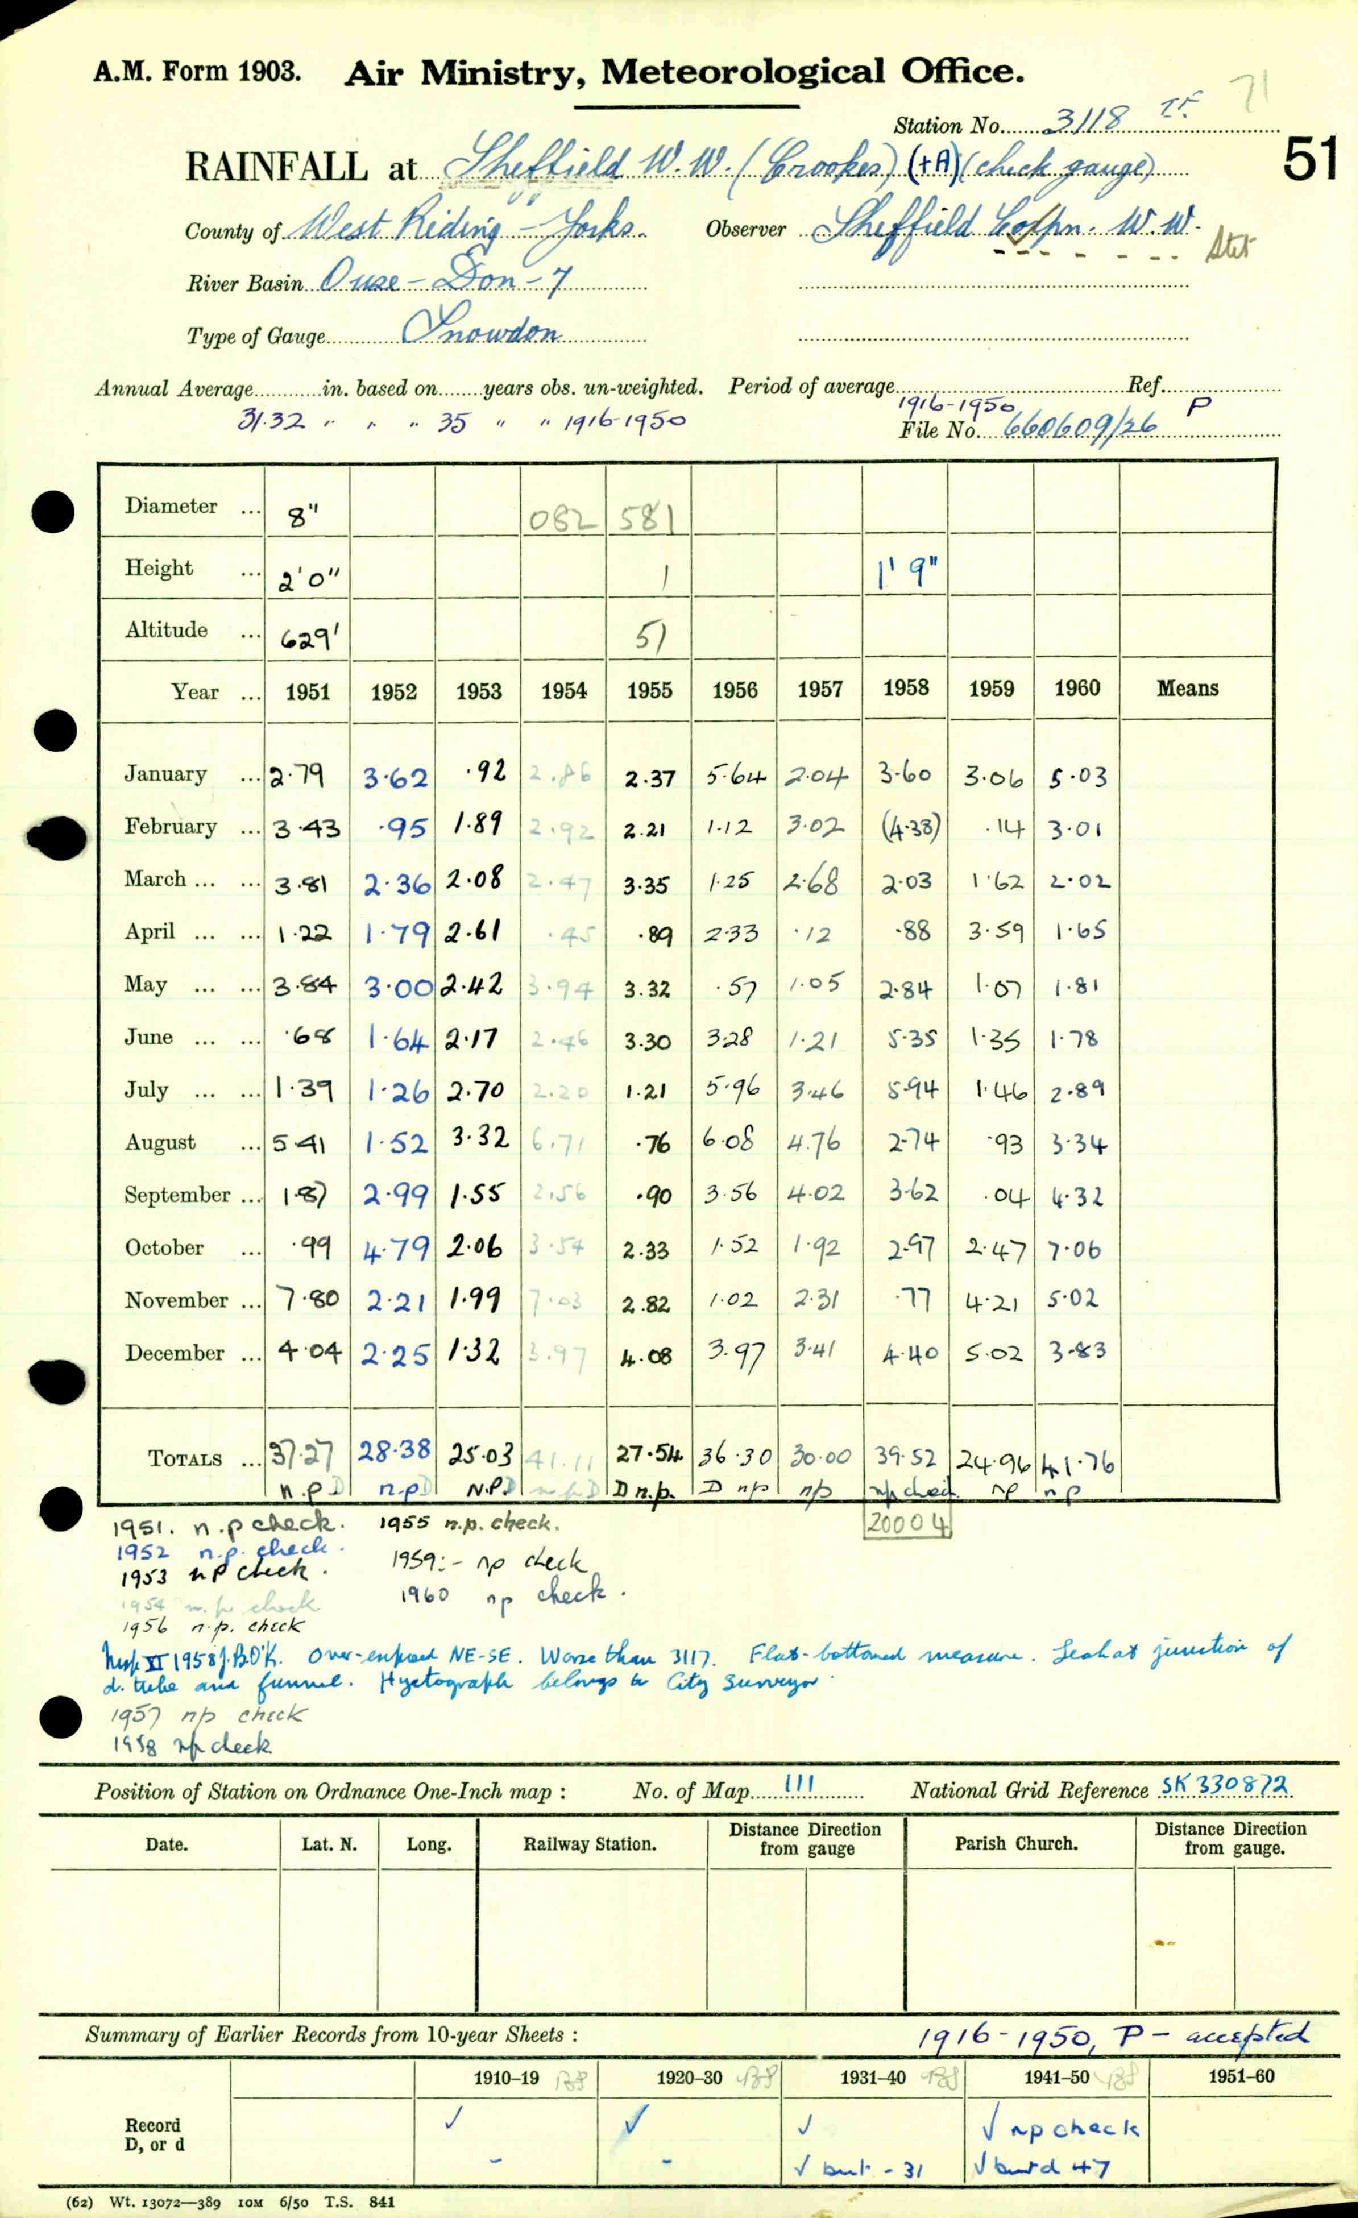 A.M. Form 1903. Air Ministry, Meteorological Office.
71
Station No. 3118
51
RAINFALL at Sheffield W.W. (Crookes) (+A) (check gauge)
County of West Riding - Yorks. Observer Sheffield Corpn. W.W. Stet
River Basin Ouse - Don - 7
Type of Gauge Snowdon
Annual Average in. based on years obs. un-weighted. Period of average 1916-1950 Ref. P
31.32 " " " 35 " " 1916-1950 File No. 660609/26
Diameter ... 8" 082 581
Height ... 2'0" 1 1'9"
Altitude ... 629' 51
Year ... 1951 1952 1953 1954 1955 1956 1957 1958 1959 1960 Means
January ... 2.79 3.62 .92 2.86 2.37 5.64 2.04 3.60 3.06 5.03
February ... 3.43 .95 1.89 2.92 2.21 1.12 3.02 (4.38) .14 3.01
March ... ... 3.81 2.36 2.08 2.47 3.35 1.25 2.68 2.03 1.62 2.02
April ... ... 1.22 1.79 2.61 .45 .89 2.33 .12 .88 3.59 1.65
May ... ... 3.84 3.00 2.42 3.94 3.32 .57 1.05 2.84 1.07 1.81
June ... ... .68 1.64 2.17 2.46 3.30 3.28 1.21 5.35 1.35 1.78
July ... ... 1.39 1.26 2.70 2.20 1.21 5.96 3.46 5.94 1.46 2.89
August ... 5.41 1.52 3.32 6.71 .76 6.08 4.76 2.74 .93 3.34
September ... 1.87 2.99 1.55 2.56 .90 3.56 4.02 3.62 .04 4.32
October ... .99 4.79 2.06 3.54 2.33 1.52 1.92 2.97 2.47 7.06
November ... 7.80 2.21 1.99 7.03 2.82 1.02 2.31 .77 4.21 5.02
December ... 4.04 2.25 1.32 3.97 4.08 3.97 3.41 4.40 5.02 3.83
TOTALS ... 37.27 28.38 25.03 41.11 27.54 36.30 30.00 39.52 24.96 41.76
n.p D n.p D N.P D n.p D D n.p. D np np np check np np
20004
1951. n.p check. 1955 n.p. check.
1952 n.p. check.
1953 n P check. 1959:- np check
1954 n.p check 1960 np check.
1956 n.p. check
Insp. XI 1958 J.BO'K. Over-exposed NE-SE. Worse than 3117. Flat-bottomed measure. Leak at junction of
d. tube and funnel. Hyetograph belongs to City Surveyor.
1957 np check
1958 np check
Position of Station on Ordnance One-Inch map : No. of Map 111 National Grid Reference SK 330872
Date. Lat. N. Long. Railway Station. Distance Direction from gauge Parish Church. Distance Direction from gauge.
Summary of Earlier Records from 10-year Sheets : 1916-1950, P - accepted
1910–19 1920–30 1931–40 1941–50 1951–60
Record ✓ ✓ ✓ ✓ np check
D, or d - - ✓ but - 31 ✓ but d 47
(62) Wt. 13072—389 10M 6/50 T.S. 841